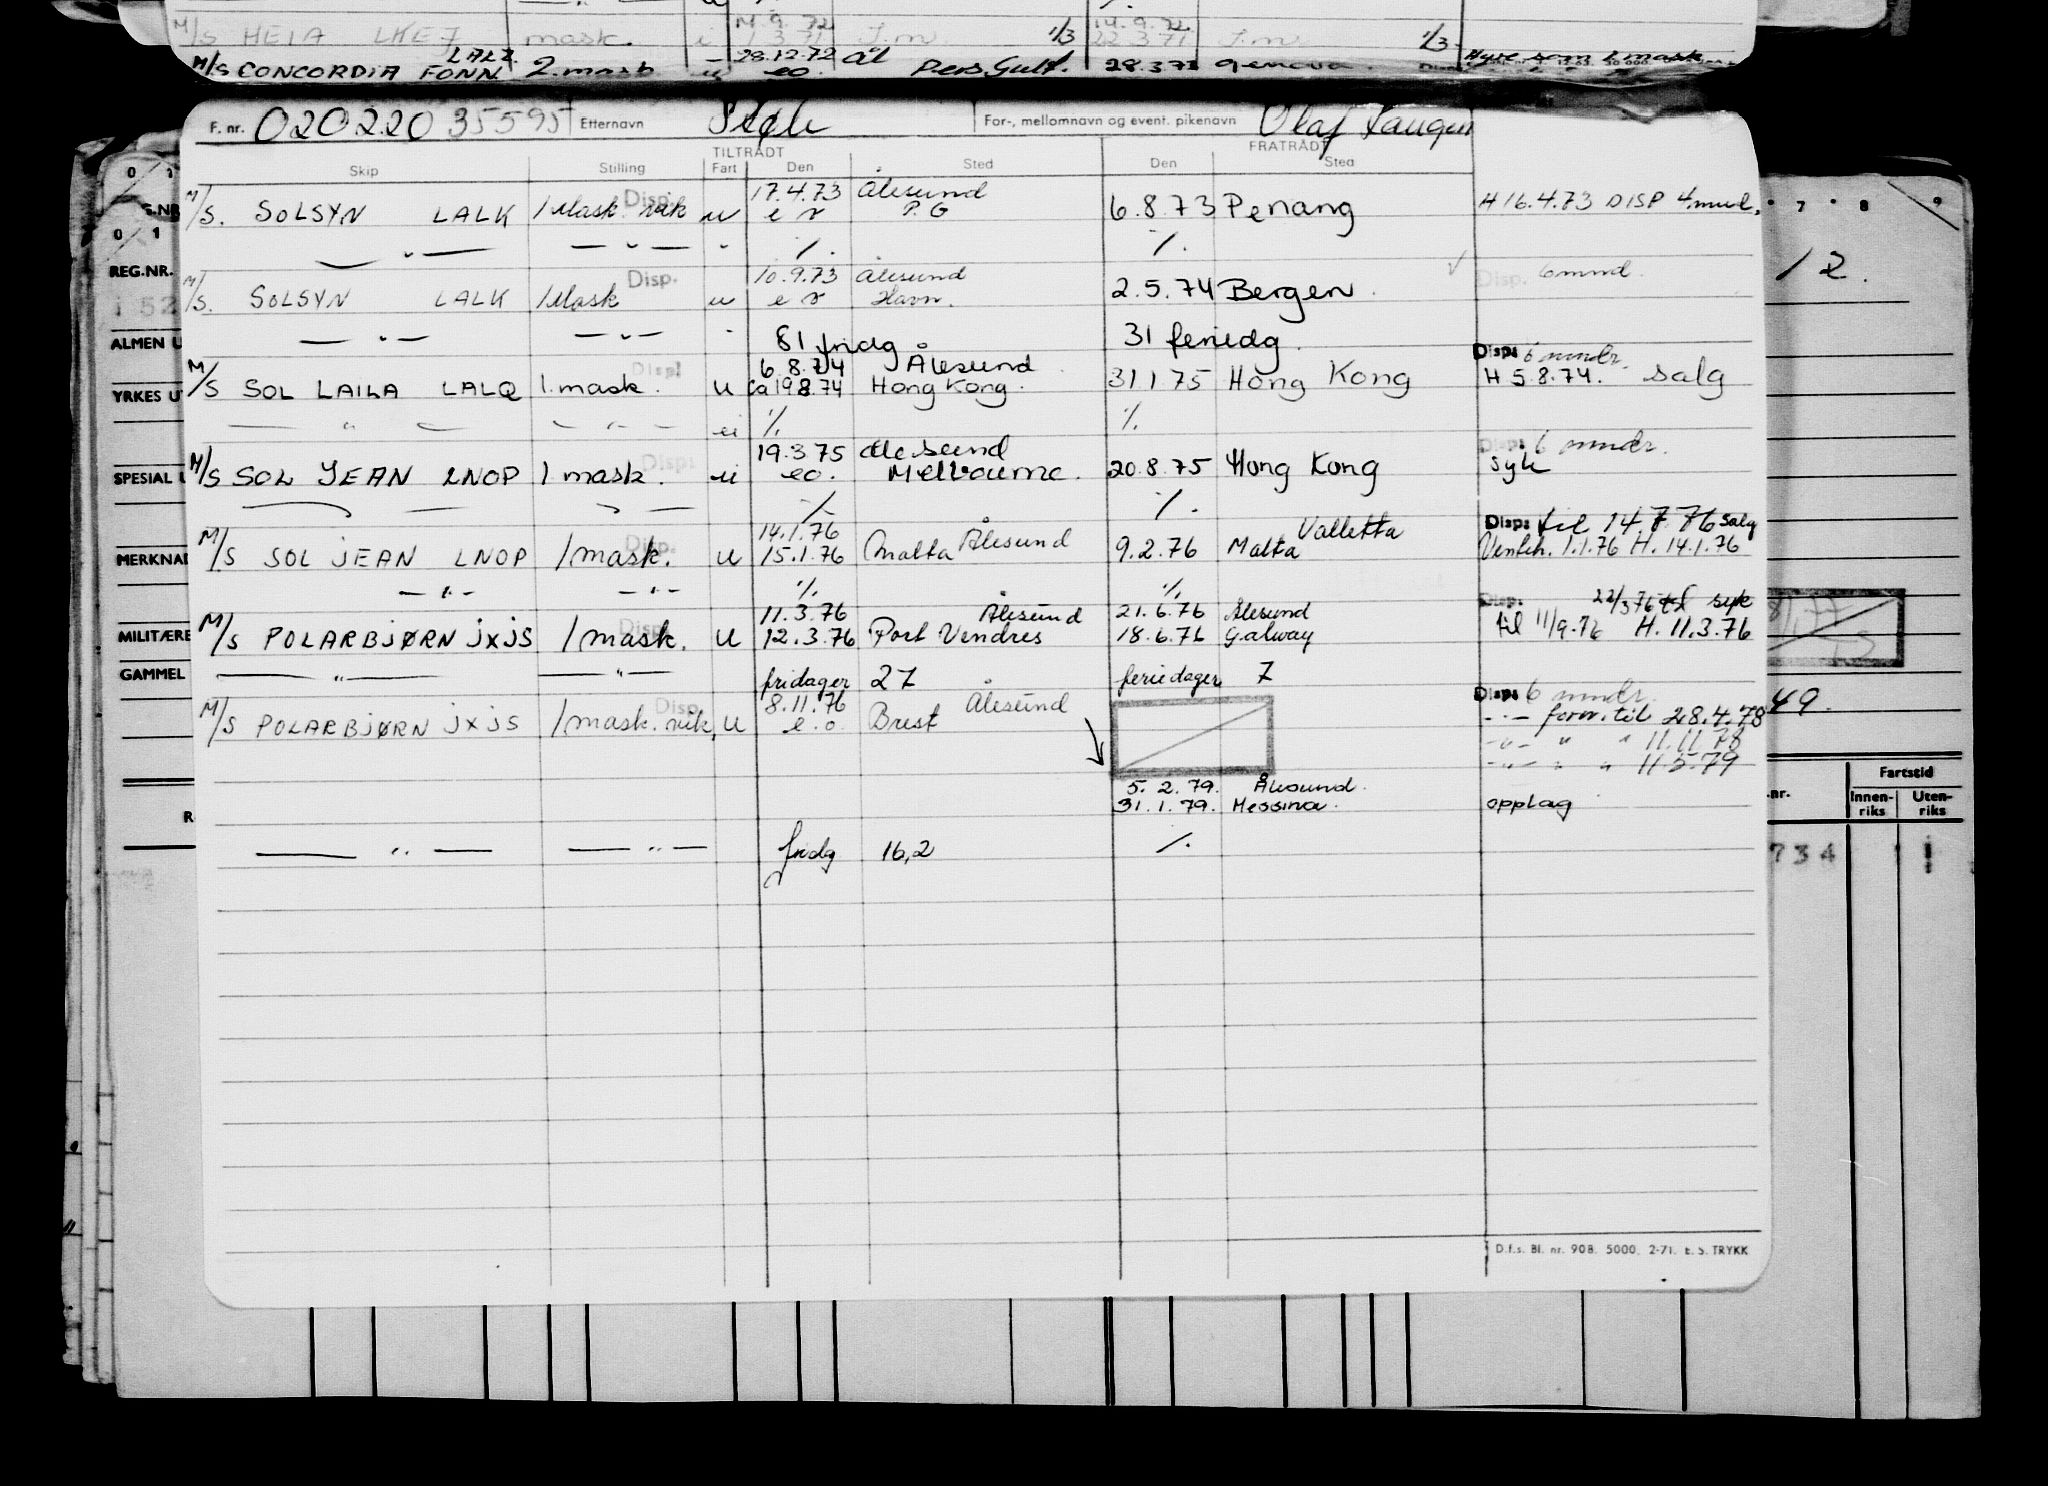 M/S HEIA LKEJ mask. i 1.3.71 22.3.71 1/3
LALZ 28.12.72 ål Hyre som 1 mask
M/S CONCORDIA FONN 2.mask u eo. Pers.Gulf. 28.3.73 Genova.
F. nr. 020220 35595 Etternavn For-, mellomnavn og event. pikenavn Olaf Laugen
TILTRÅDT FRATRÅDT
Skip Stilling Fart Den Sted Den Sted
Disp. 17.4.73 Ålesund
M/S. SOLSYN LALK 1 Mask. vik u e r P.G 6.8.73 Penang H 16.4.73 DISP 4 mnd.
— " — — " — " %. %.
Disp. 10.9.73 Ålesund Disp. 6 mnd.
M/S. SOLSYN LALK 1 Mask u e r Havn. 2.5.74 Bergen
— " — — " — " 81 fridg 31 feriedg.
Disp. 6.8.74 Ålesund Disp: 6 mndr.
M/S SOL LAILA LALQ 1. mask. u ca 19.8.74 Hong Kong. 31.1.75 Hong Kong H 5.8.74. salg
— " — — " — u %. %.
Disp: 19.3.75 Ålesund Disp: 6 mndr.
M/S SOL JEAN LNOP 1 mask. u eo. Melbourne. 20.8.75 Hong Kong syk
%. %.
Disp. 14.1.76 Ålesund Valletta Disp: til 14.7.76 salg
M/S SOL JEAN LNOP 1 mask. u 15.1.76 Malta 9.2.76 Malta Venteh. 1.1.76 H. 14.1.76
— " — — " — %. %.
Disp. 11.3.76 Ålesund 21.6.76 Ålesund Disp. 22/3 76 til syk
M/S POLARBJØRN JXJS 1 mask. u 12.3.76 Port Vendres 18.6.76 Galway til 11/9.76 H. 11.3.76
— " — — " — fridager 27 feriedager 7
Disp. 8.11.76 Ålesund Disp: 6 mndr.
M/S POLARBJØRN JXJS 1 mask. vik, u e.o. Brest — " — forv. til 28.4.78
— " — " " 11.11.78
— " — " " 11.5.79
5.2.79. Ålesund.
31.1.79. Messina. opplag
— " — — " — fridg 16,2 %.
D.f.s. Bl. nr. 908. 5000. 2-71. E. S. TRYKK
REG.NR.
ALMEN U
YRKES U
SPESIAL
MERKNAD
MILITÆRE
GAMMEL
7 8 9
12.
49.
Fartstid
nr. Innen-riks Uten-riks
734